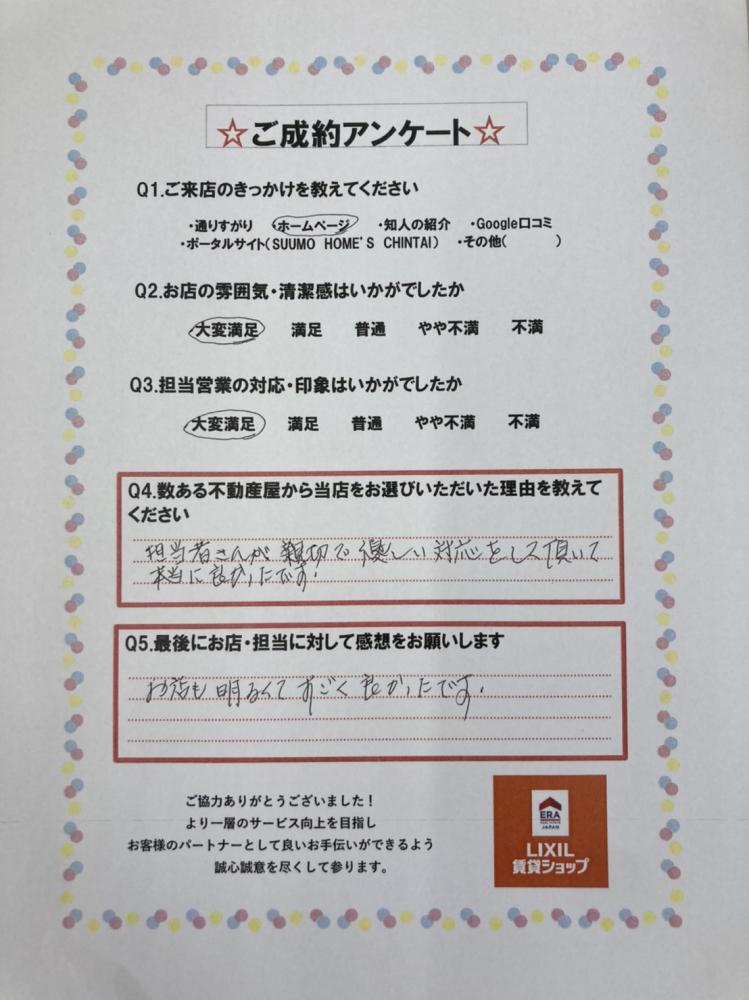 ☆ご成約アンケート☆
Q1.ご来店のきっかけを教えてください
・通りすがり ・ホームページ ・知人の紹介 ・Google口コミ
・ポータルサイト(SUUMO HOME'S CHINTAI) ・その他( )
Q2.お店の雰囲気・清潔感はいかがでしたか
大変満足 満足 普通 やや不満 不満
Q3.担当営業の対応・印象はいかがでしたか
大変満足 満足 普通 やや不満 不満
Q4.数ある不動産屋から当店をお選びいただいた理由を教えて
ください
担当者さんが親切で優しい対応をして頂いて
本当に良かったです!
Q5.最後にお店・担当に対して感想をお願いします
お店も明るくてすごく良かったです.
ご協力ありがとうございました!
より一層のサービス向上を目指し
お客様のパートナーとして良いお手伝いができるよう
誠心誠意を尽くして参ります。
ERA
JAPAN
LIXIL
賃貸ショップ